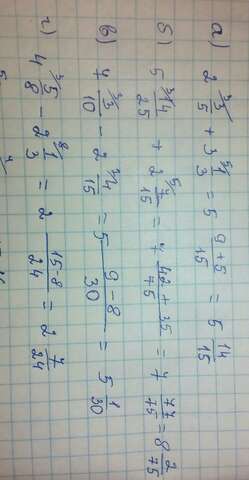 а) 2 ³3/5 + 3 ⁵1/3 = 5 (9+5)/15 = 5 14/15
б) 5 ³14/25 + 2 ⁵7/15 = 7 (42+35)/75 = 7 77/75 = 8 2/75
в) 7 ³3/10 - 2 ²4/15 = 5 (9-8)/30 = 5 1/30
г) 4 ³5/8 - 2 ⁸1/3 = 2 (15-8)/24 = 2 7/24